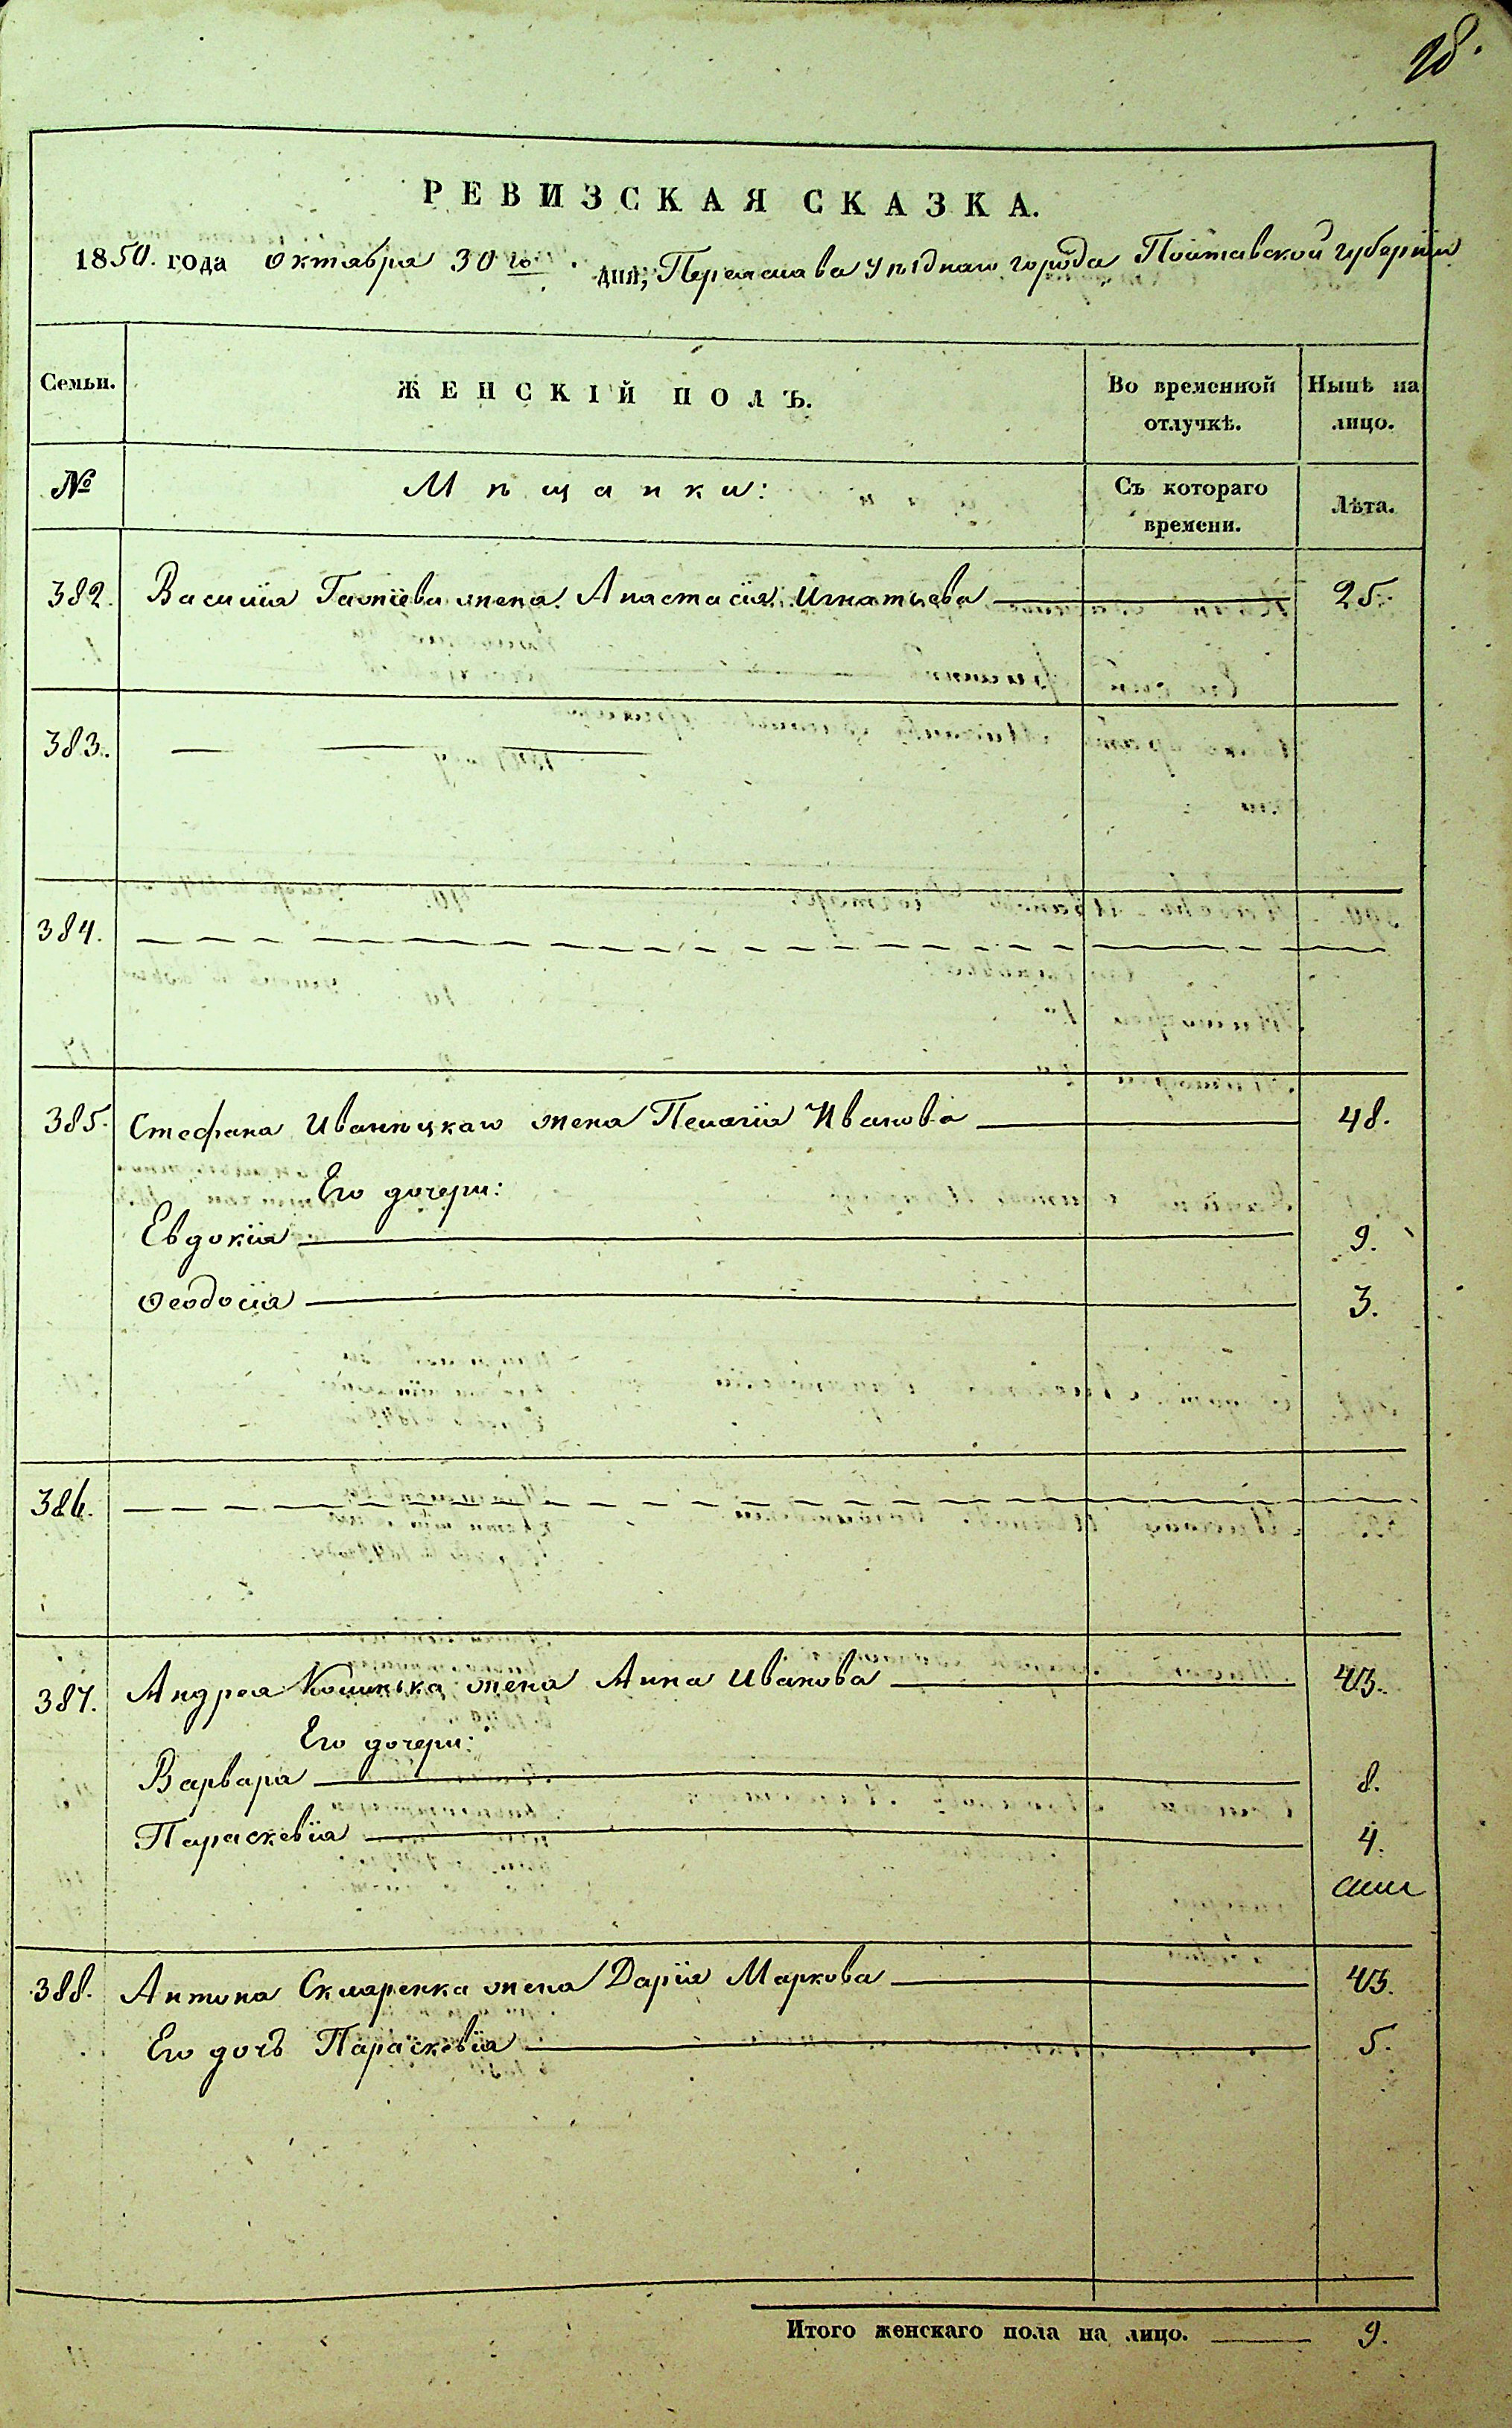 28.
РЕВИЗСКАЯ СКАЗКА.
1850. года октября 30го дня, Переяслава уѣзднаго города Полтавской губернїи
Семьи. ЖЕНСКІЙ ПОЛЪ. Во временной отлучкѣ. Нынѣ на лицо.
№ Мѣщанки: Съ котораго времени. Лѣта.
382. Василїя жена Анастасїя Игнатьева 25.
383.
384.
385. Стефана Иваницкаго жена Пелагїя Иванова 48.
Его дочери:
Евдокїя 9.
Ѳеодосїя 3.
386.
387. Андрея жена Анна Иванова 43.
Его дочери:
Варвара 8.
Параскевїя 4.
388. Антона Скляренка жена Дарїя Маркова 43.
Его дочь Параскевїя 5.
Итого женскаго пола на лицо. 9.